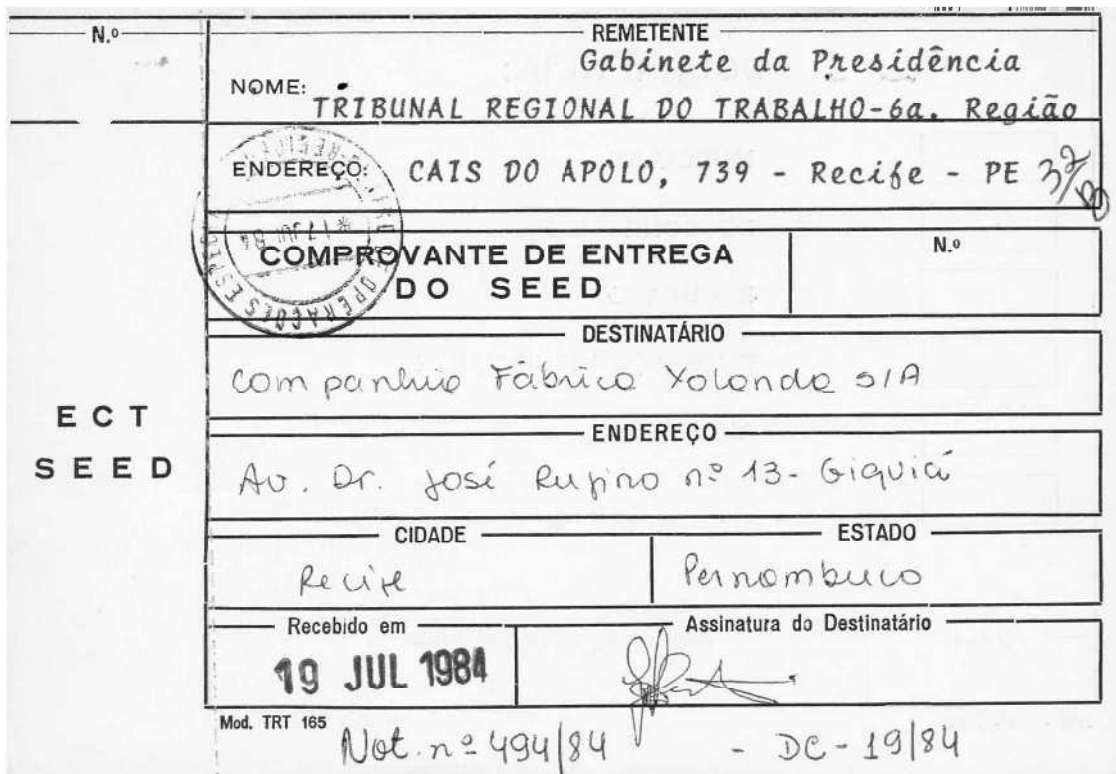 N.º
REMETENTE
Gabinete da Presidência
NOME:
TRIBUNAL REGIONAL DO TRABALHO-6a. Região
ENDEREÇO: CAIS DO APOLO, 739 - Recife - PE
17 JUL 84
OPERAÇÕES
COMPROVANTE DE ENTREGA
DO SEED
N.º
DESTINATÁRIO
Companhia Fábrica Yolanda S/A
ECT
SEED
ENDEREÇO
Av. Dr. José Rufino nº 13 - Giquiá
CIDADE
ESTADO
Recife
Pernambuco
Recebido em
Assinatura do Destinatário
19 JUL 1984
Mod. TRT 165
Not. nº 494/84 - DC - 19/84